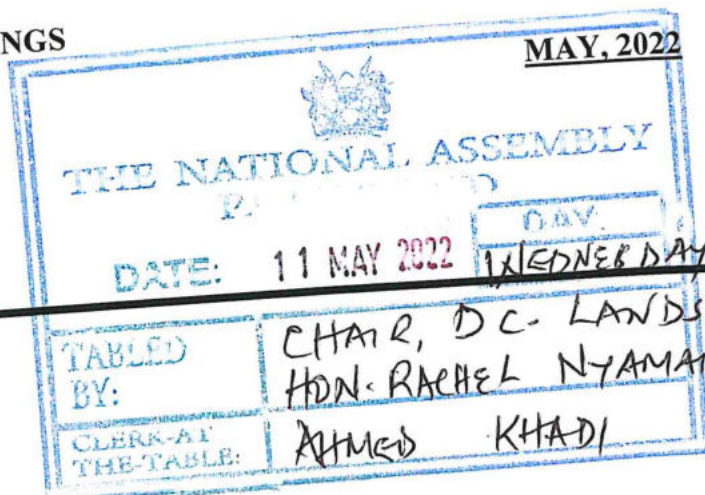 NGS
MAY, 2022
THE NATIONAL ASSEMBLY
DATE: 11 MAY 2022
DAY:
WEDNESDAY
TABLED BY:
CHAIR, DC. LANDS
HON. RACHEL NYAMAI
CLERK-AT THE-TABLE:
AHMED KHADI